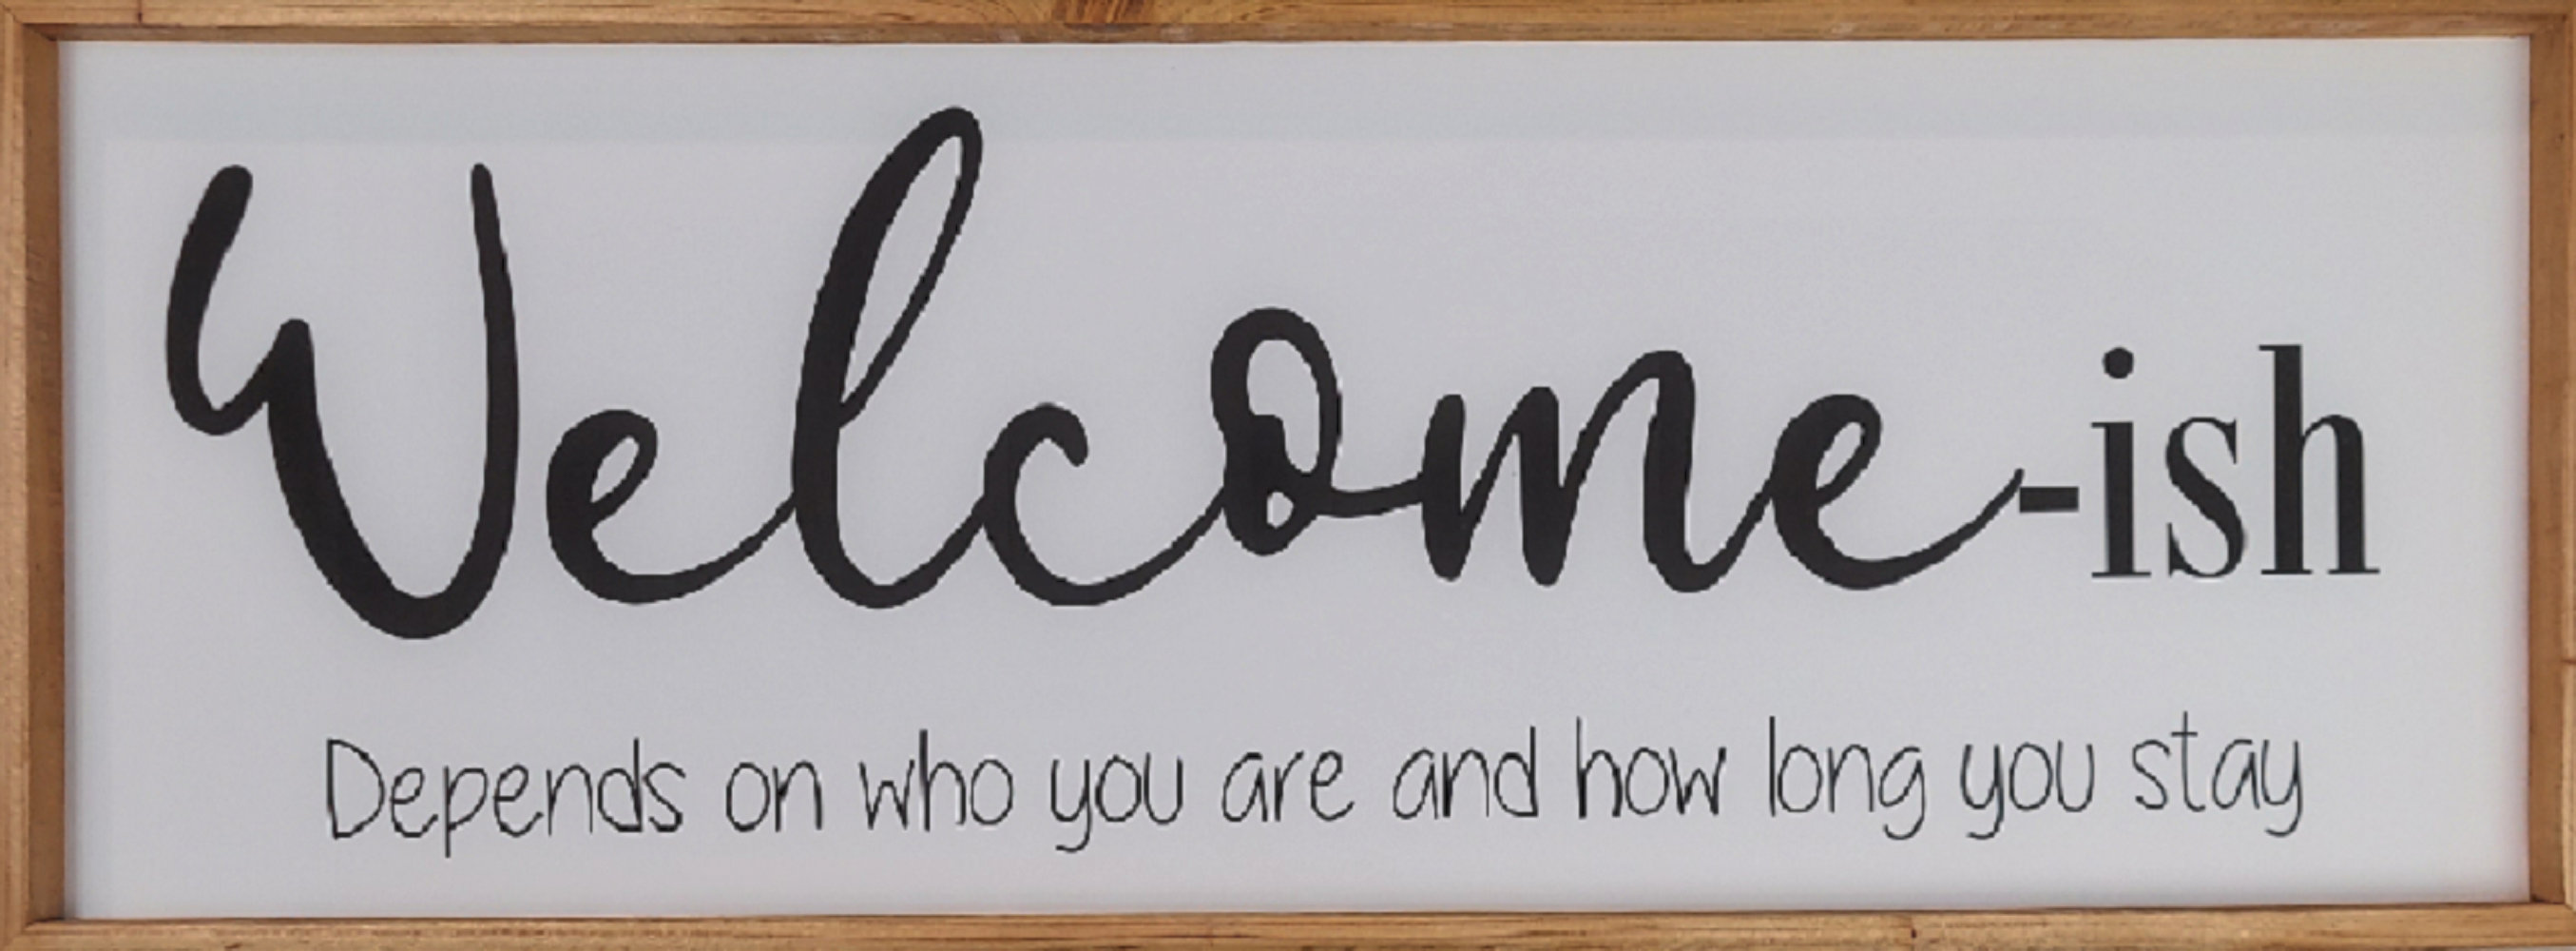 Welcome-ish
Depends on who you are and how long you stay